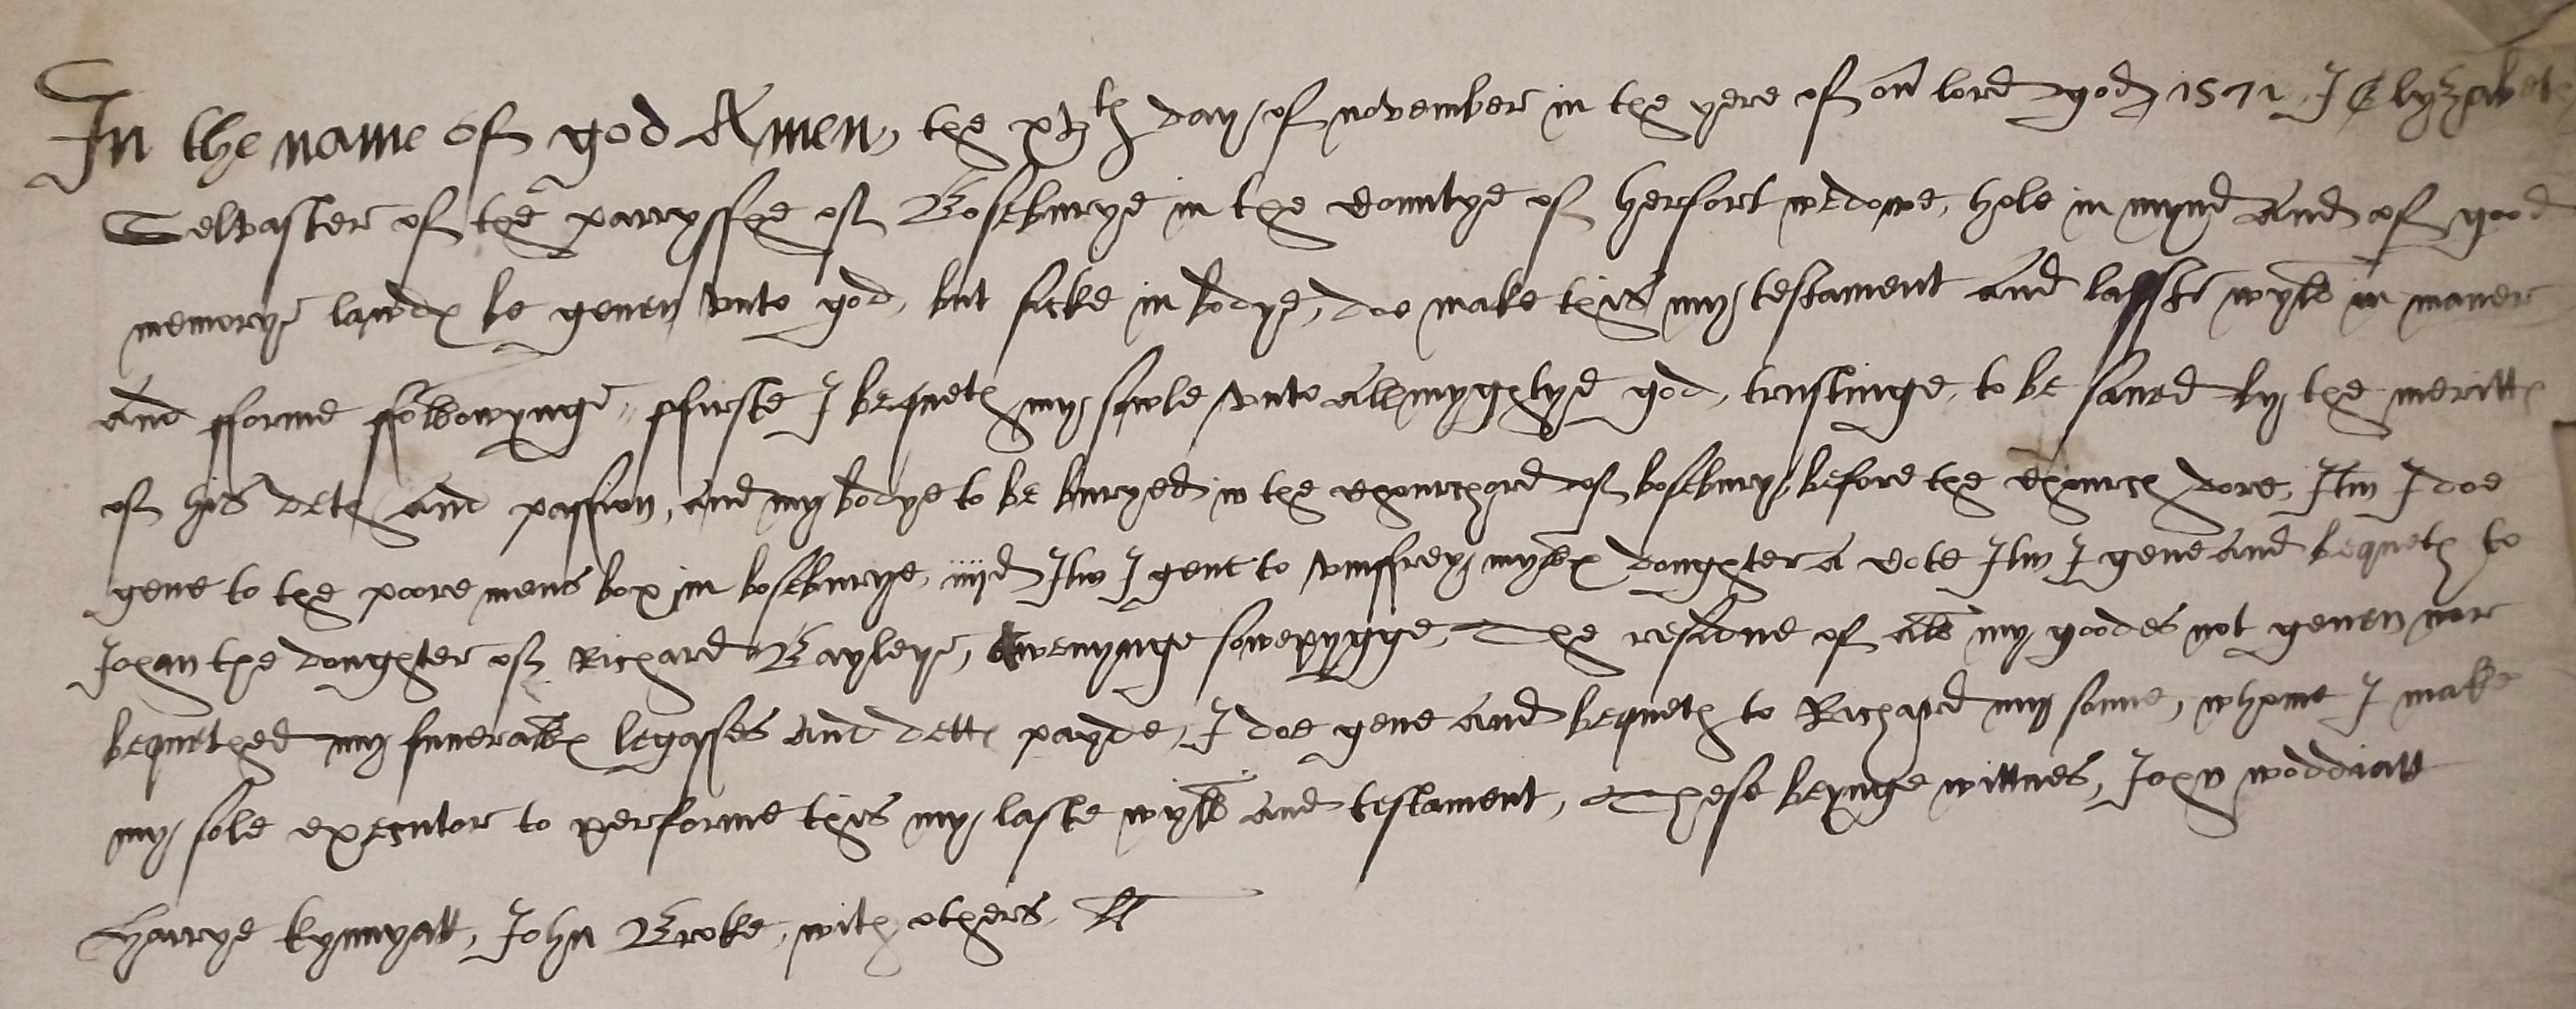 In the name of god Amen, the xvth day of november in the yere of our lord god 1571 I Elyzabeth
of the parrysshe of Bosburye in the countye of Herfort wedowe, hole in mynd and of good
memorye lawdes be geven unto god, but sicke in bodye, doe make this my testament and laste wyll in maner
and fforme ffollowynge, ffirste I bequeth my sowle unto allmyghtye god, trustinge, to be saved by the merittes
of his deth and passion, and my bodye to be buryed in the chourchard of bosbury, before the chourch dore, Itm I doe
geve to the poore mens box in bosburye, iiijd Itm I geve to umffrey, mylles doughter a cote Itm I geve and bequeth to
Johan the doughter of Richard Bayleye, a wenynge sowepygge, The residue of all my goodes not geven nor
bequethed my funeralles legasses and dettes payde, I doe geve and bequeth to Richard my sonne, whome I make
my sole executor to performe this my laste wyll and testament, These beynge wittnes, John woddiatt
Harrye kynnyatt, John Broke, with others